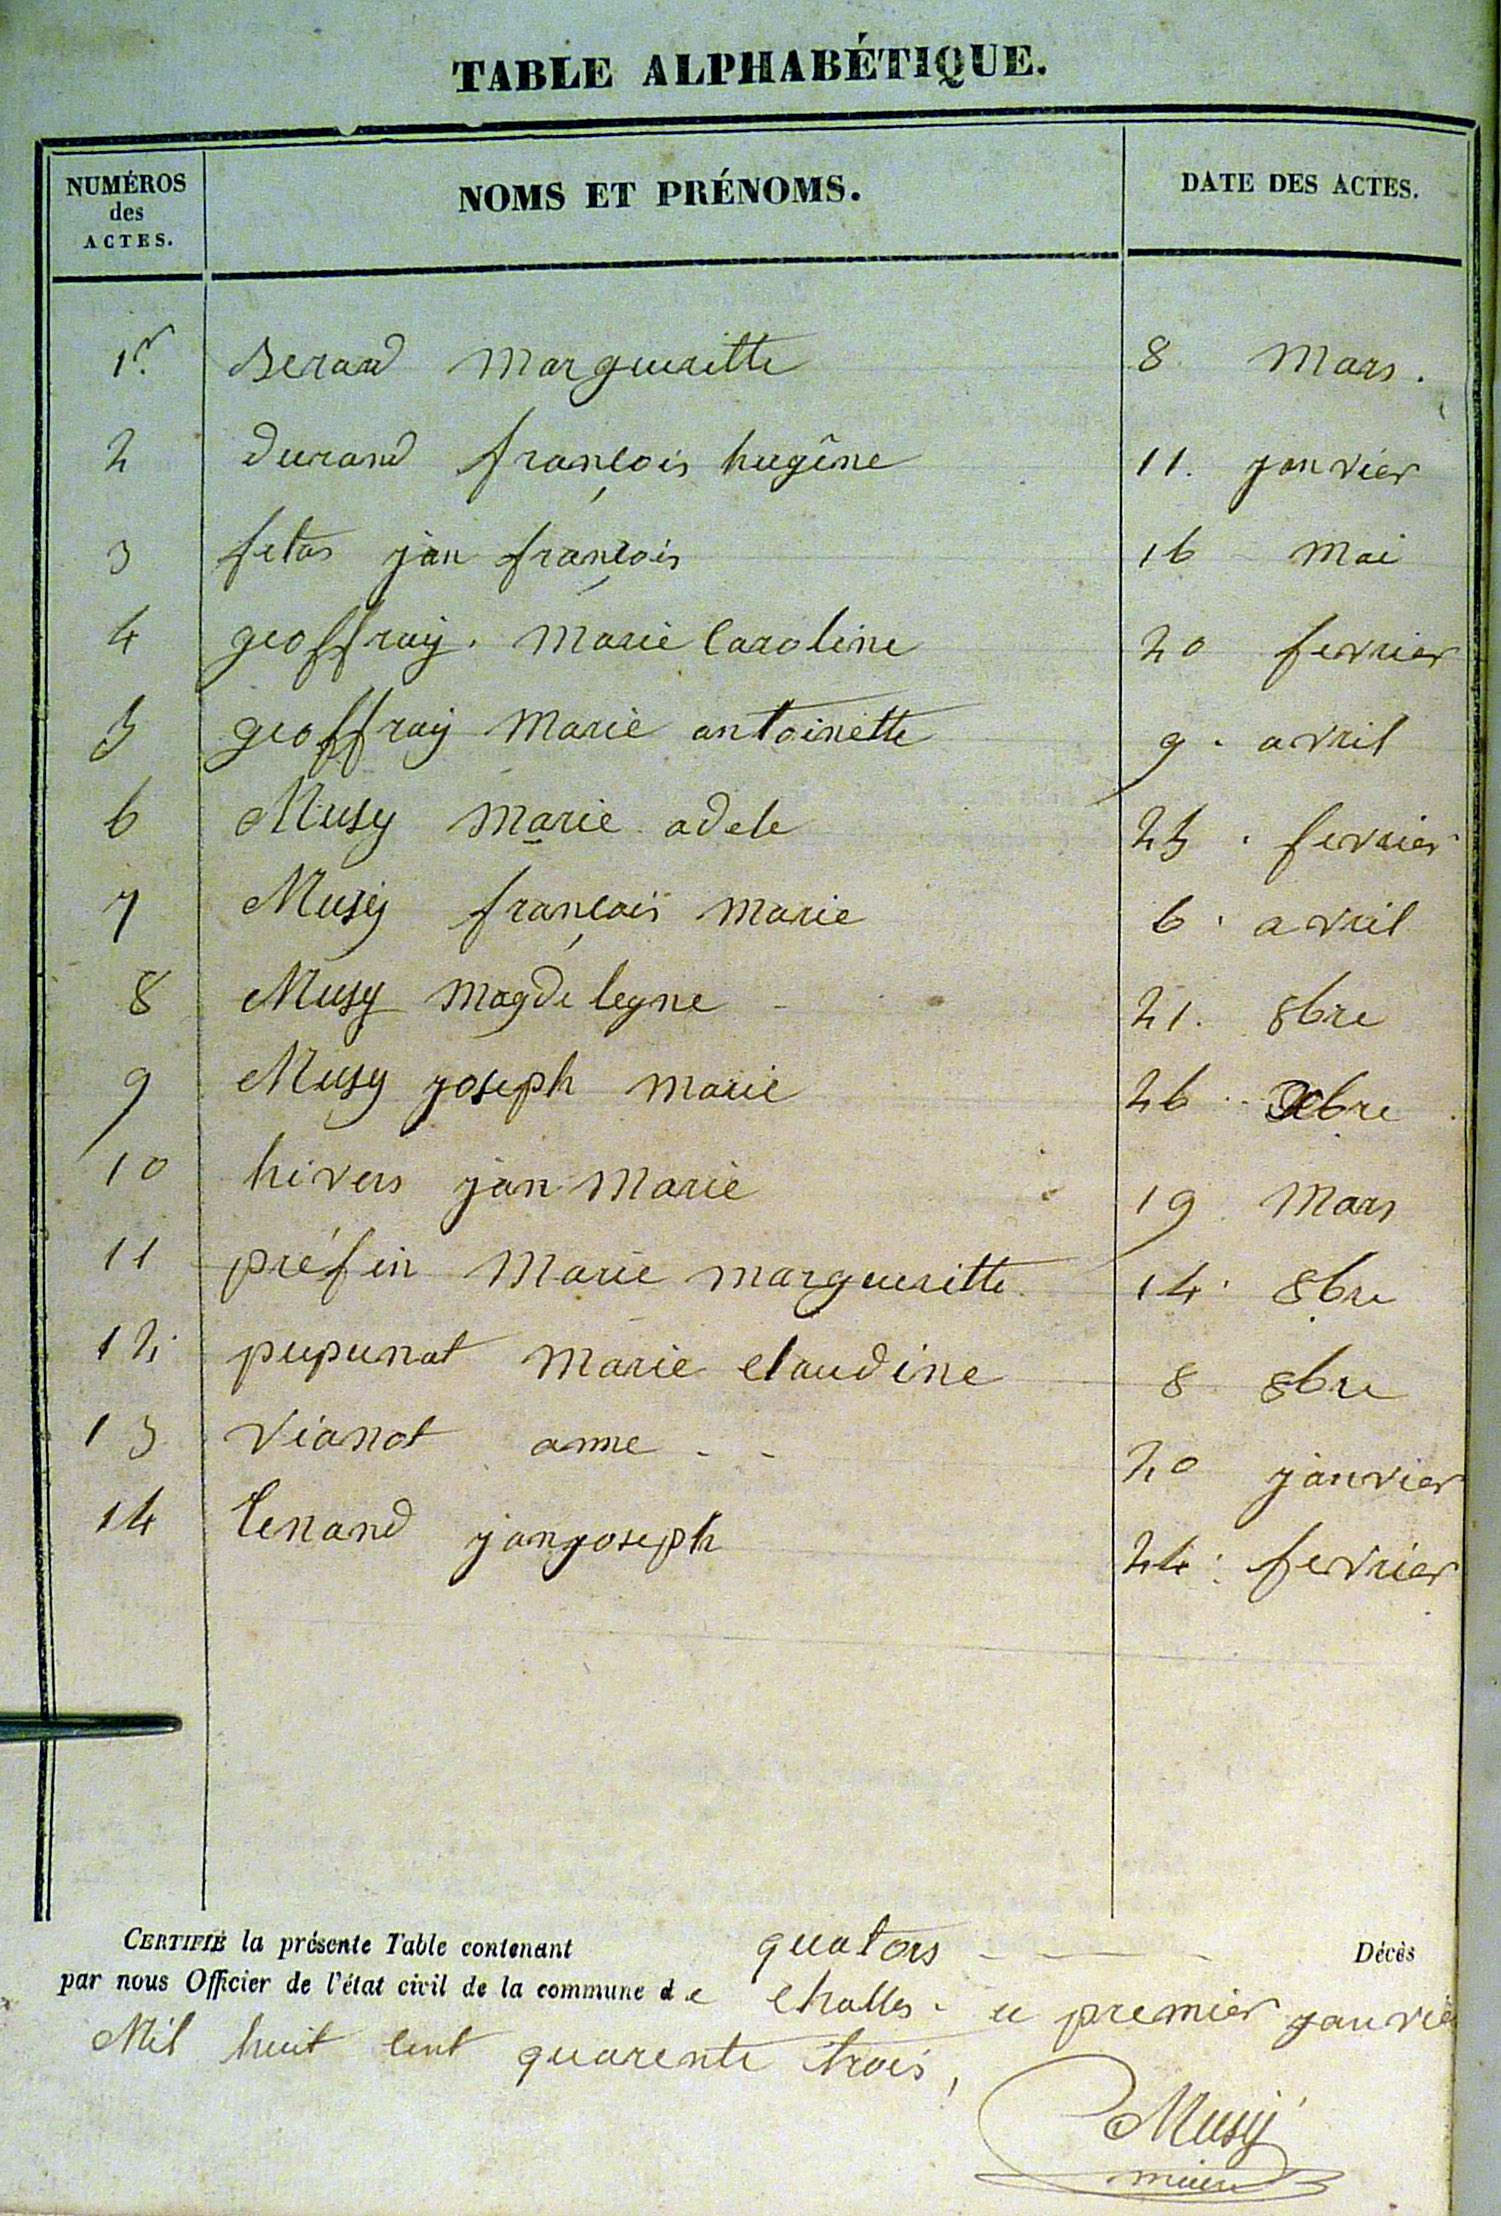 TABLE ALPHABÉTIQUE.
NUMÉROS des ACTES. NOMS ET PRÉNOMS. DATE DES ACTES.
1r. Berard Margueritte 8 Mars.
2 durand françois hugêne 11. janvier
3 fetas jan françois 16 Mai
4 geoffray. Marie Caroline 20 fevrier
5 geoffray Marie antoinette 9. avril
6 Musy Marie adele 25. fevrier
7 Musy françois Marie 6. avril
8 Musy Magdeleyne 21. 8bre
9 Musy joseph Marie 26 Xbre
10 hivers jan Marie 19 Mars
11 préfin Marie margueritte 14. 8bre
12. pupunat Marie claudine 8 8bre
13 Vianot anne - - 20 janvier
14 tenand jan joseph 24: fevrier
CERTIFIÉ la présente Table contenant quators Décès
par nous Officier de l'état civil de la commune de challes. ce premier janvie
Mil huit cent quarente trois,
Musy
Maire